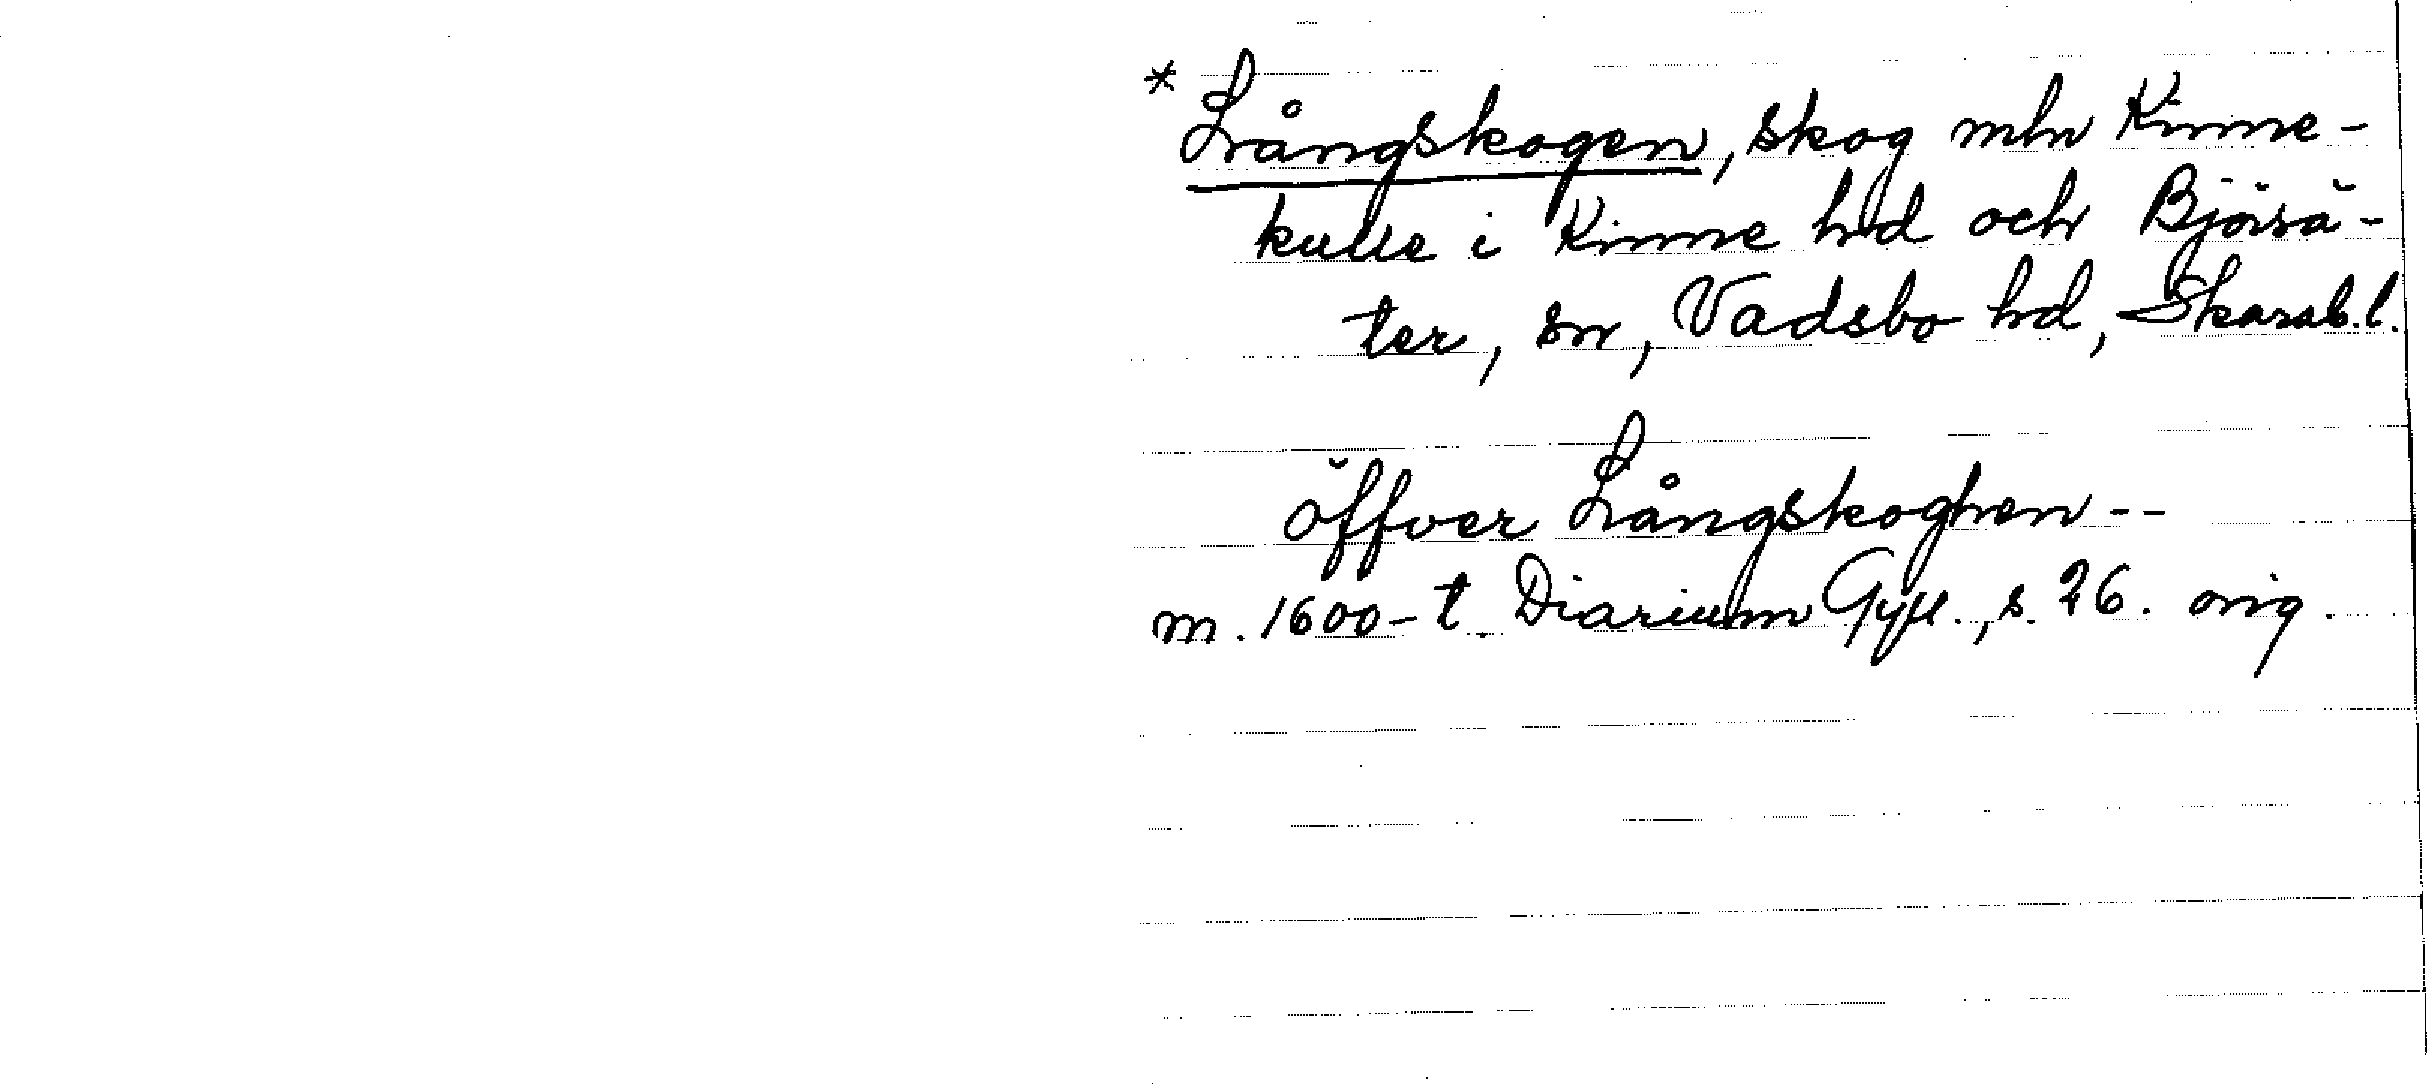 * Långskogen, skog mln Kinne-
kulle i Kinne hd och Björsä-
ter, sn, Vadsbo hd, Skarab.l.
öffver Långskoghen--
m. 1600-t. Diarium Gyll., s. 26. orig.